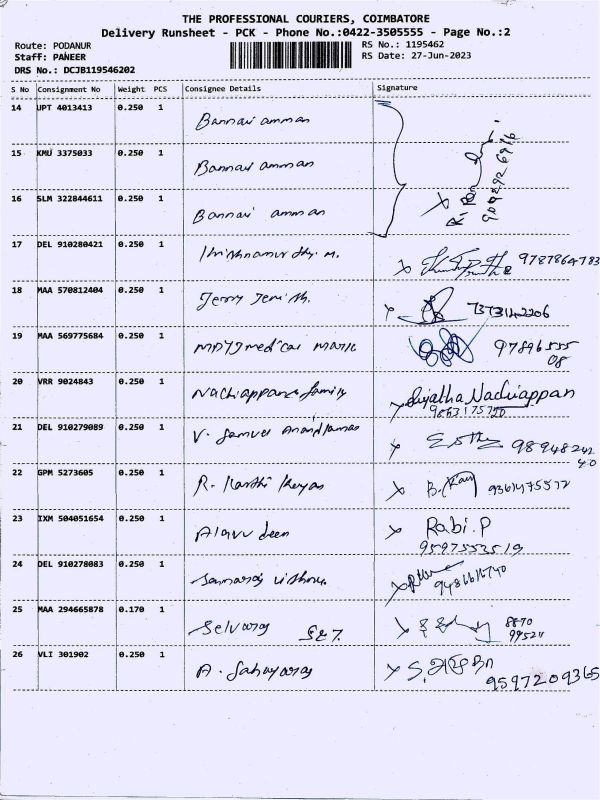 THE PROFESSIONAL COURIERS, COIMBATORE
Delivery Runsheet - PCK - Phone No.:0422-3505555 - Page No.:2
Route: PODANUR RS No.: 1195462
Staff: PANEER RS Date: 27-Jun-2023
DRS No.: DCJB119546202
S No Consignment No Weight PCS Consignee Details Signature
14 UPT 4013413 0.250 1 Bannari amman
15 KMU 3375033 0.250 1 Bannari amman
16 SLM 322844611 0.250 1 Bannari amman
17 DEL 910280421 0.250 1 9787864783
18 MAA 570812404 0.250 1 Jerry
19 MAA 569775684 0.250 1 medical 97896555
08
20 VRR 9024843 0.250 1 Nachiappan family Sujatha Nachiappan
21 DEL 910279089 0.250 1 V. Samuel 98948242
40
22 GPM 5273605 0.250 1 R. Karthi
23 IXM 504051654 0.250 1 Alavu deen Rabi.P
9597553519
24 DEL 910278083 0.250 1
9486616740
25 MAA 294665878 0.170 1 Selvaraj 8870
99524
26 VLI 301902 0.250 1 A. Sahayaraj
9597209365